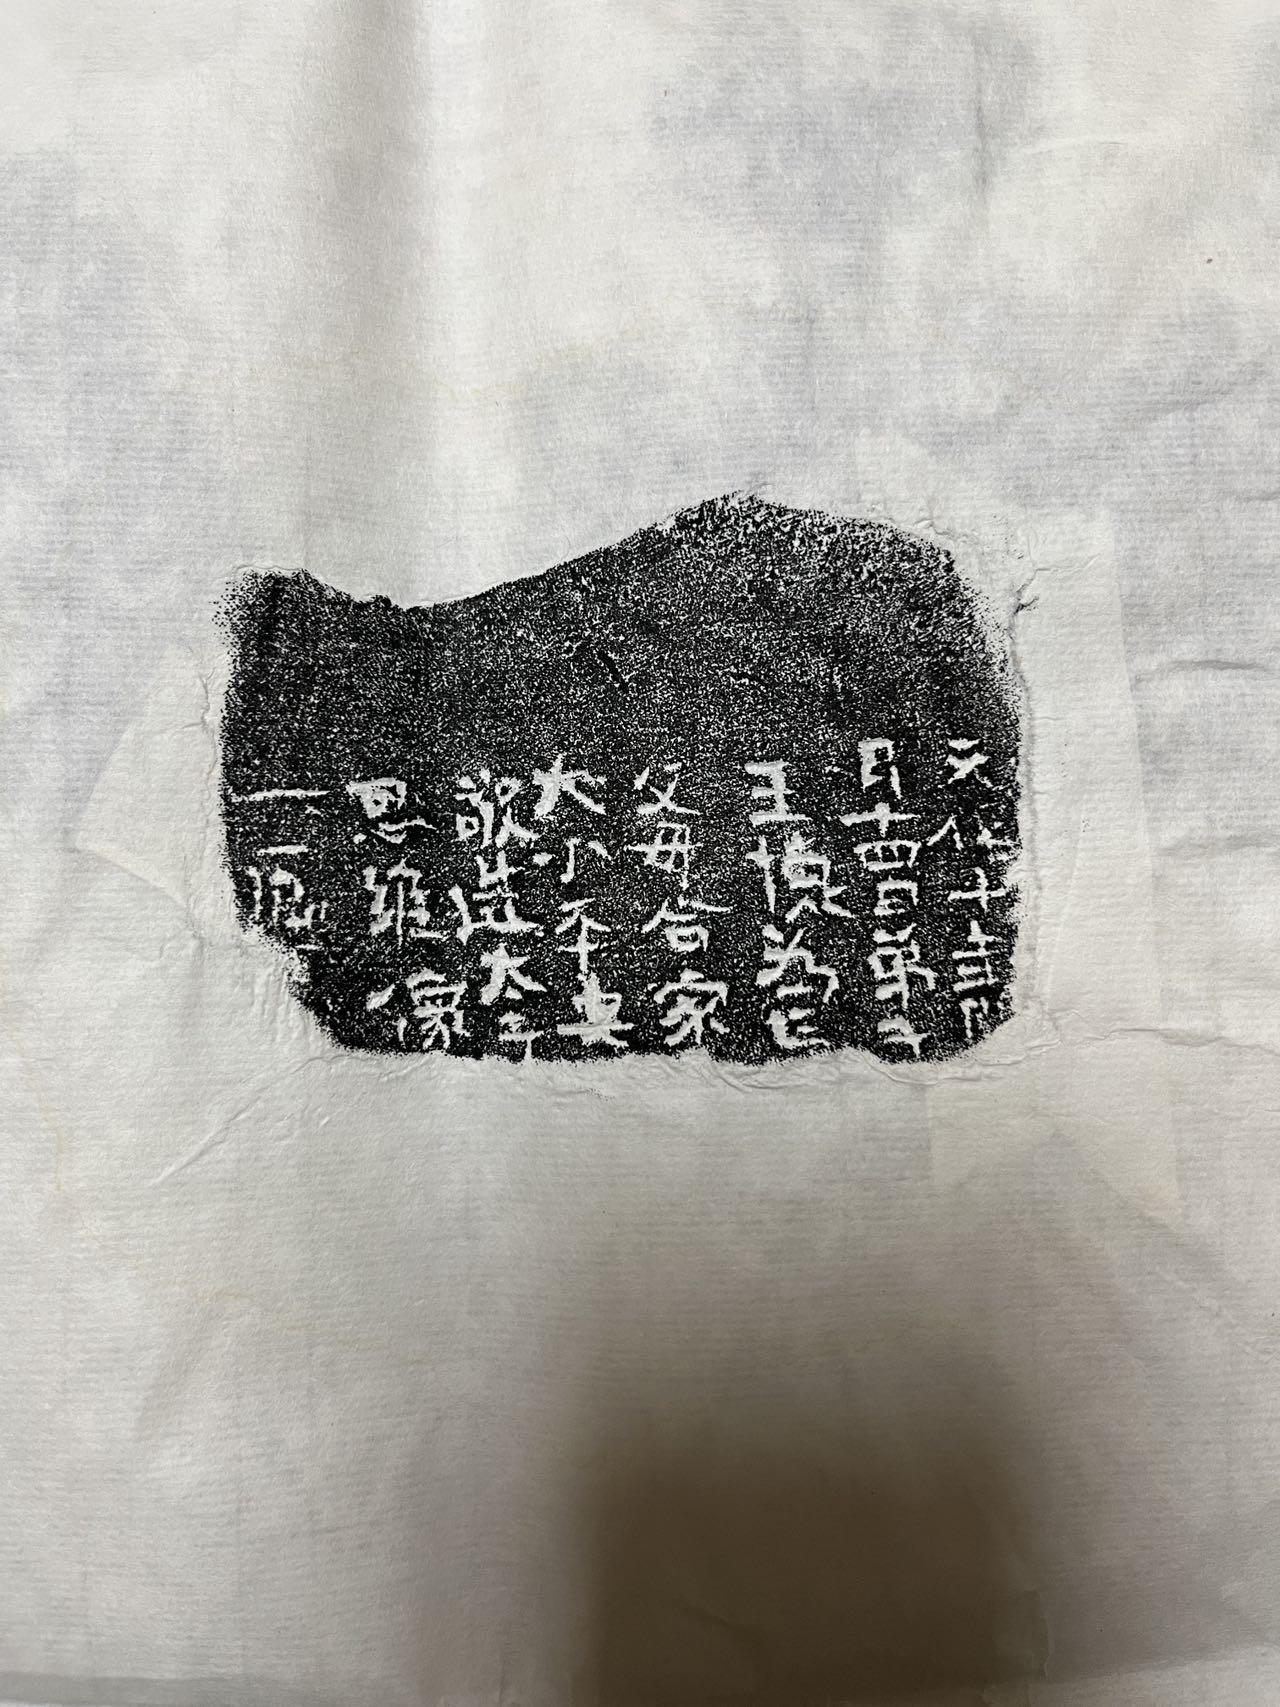 天保十年
月十四日弟子
王為亡
父母合家
大小平安
敬造太子
思惟像
一區